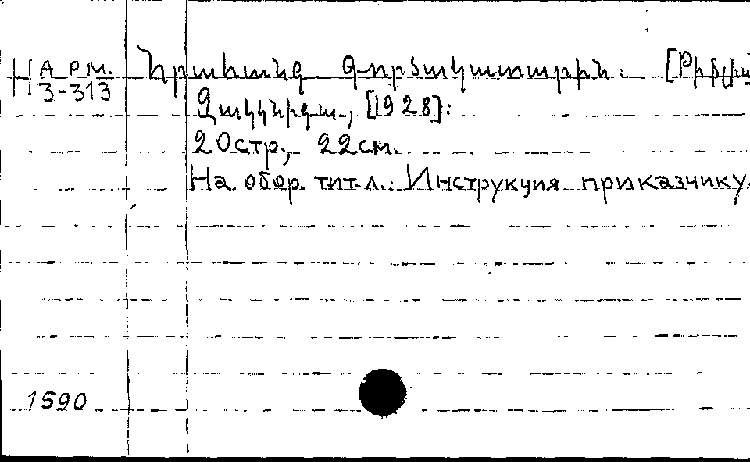 Н АРМ. Հրահանգ գործակատարին. [Թիֆլիս
3-313
Զակկնիգա, [1928]:
20стр., 22см.
На обор. тит. л.: Инструкция приказчику
1590